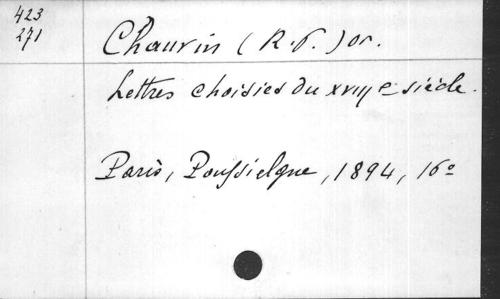 423
271
Chauvin (R.P.) or.
Lettres choisies du XVIIIe siècle.
Paris, Poussielgue, 1894, 16º